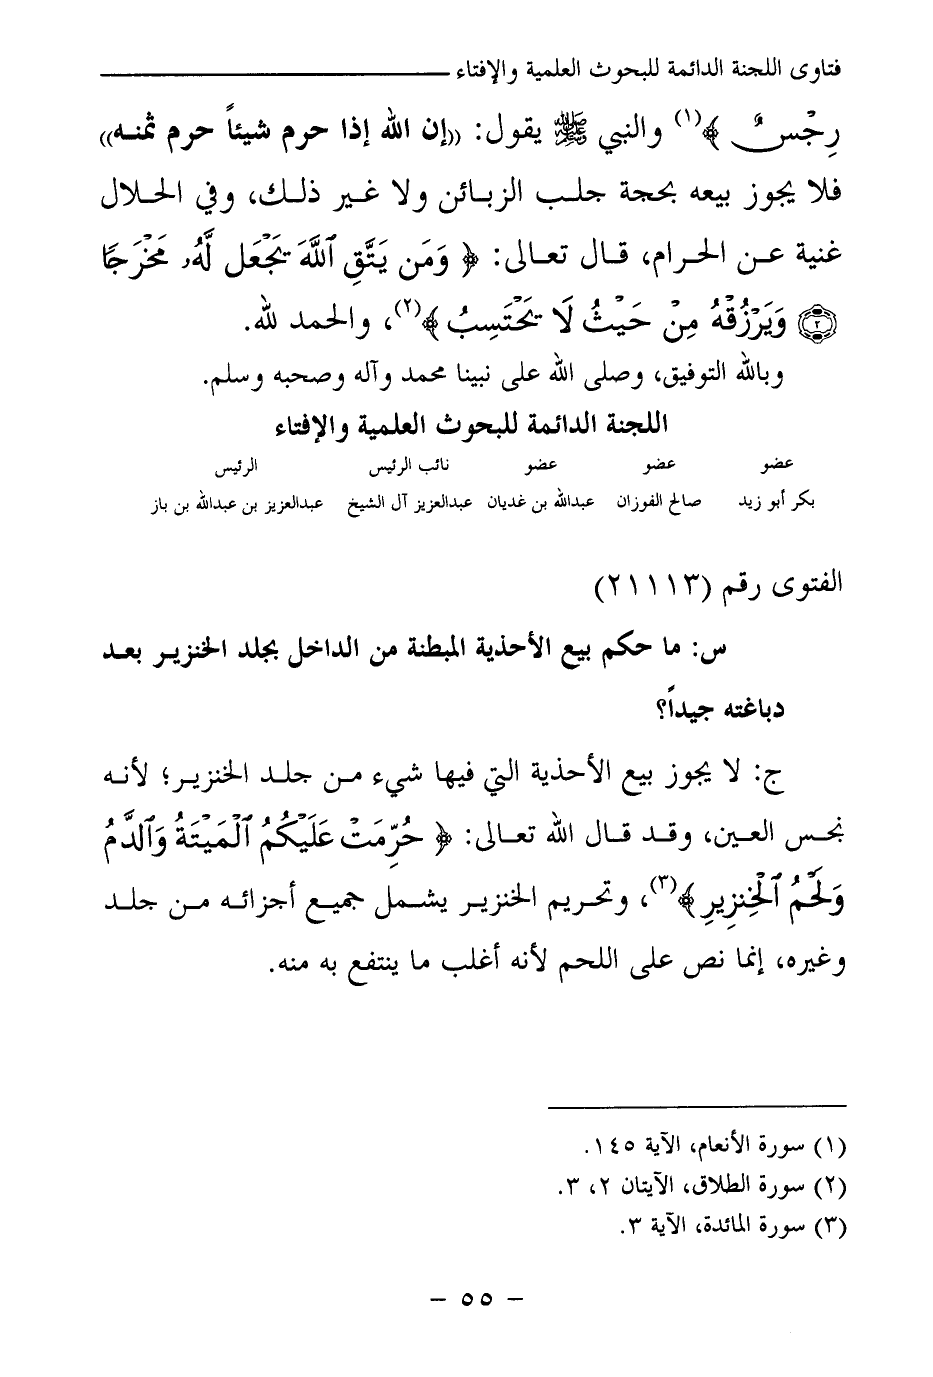 فتاوى اللجنة الدائمة للبحوث العلمية والإفتاء
رِجْسٌ ﴾(١) والنبي ﷺ يقول: ((إن الله إذا حرم شيئاً حرم ثمنه))
فلا يجوز بيعه بحجة جلب الزبائن ولا غير ذلك، وفي الحلال
غنية عن الحرام، قال تعالى: ﴿ وَمَن يَتَّقِ ٱللَّهَ يَجْعَل لَّهُۥ مَخْرَجًا
۝٢ وَيَرْزُقْهُ مِنْ حَيْثُ لَا يَحْتَسِبُ ﴾(٢)، والحمد لله.
وبالله التوفيق، وصلى الله على نبينا محمد وآله وصحبه وسلم.
اللجنة الدائمة للبحوث العلمية والإفتاء
عضو عضو عضو نائب الرئيس الرئيس
بكر أبو زيد صالح الفوزان عبدالله بن غديان عبدالعزيز آل الشيخ عبدالعزيز بن عبدالله بن باز
الفتوى رقم (٢١١١٣)
س: ما حكم بيع الأحذية المبطنة من الداخل بجلد الخنزير بعد
دباغته جيداً؟
ج: لا يجوز بيع الأحذية التي فيها شيء من جلد الخنزير؛ لأنه
نجس العين، وقد قال الله تعالى: ﴿ حُرِّمَتْ عَلَيْكُمُ ٱلْمَيْتَةُ وَٱلدَّمُ
وَلَحْمُ ٱلْخِنزِيرِ ﴾(٣)، وتحريم الخنزير يشمل جميع أجزائه من جلد
وغيره، إنما نص على اللحم لأنه أغلب ما ينتفع به منه.
(١) سورة الأنعام، الآية ١٤٥.
(٢) سورة الطلاق، الآيتان ٢، ٣.
(٣) سورة المائدة، الآية ٣.
– ٥٥ –